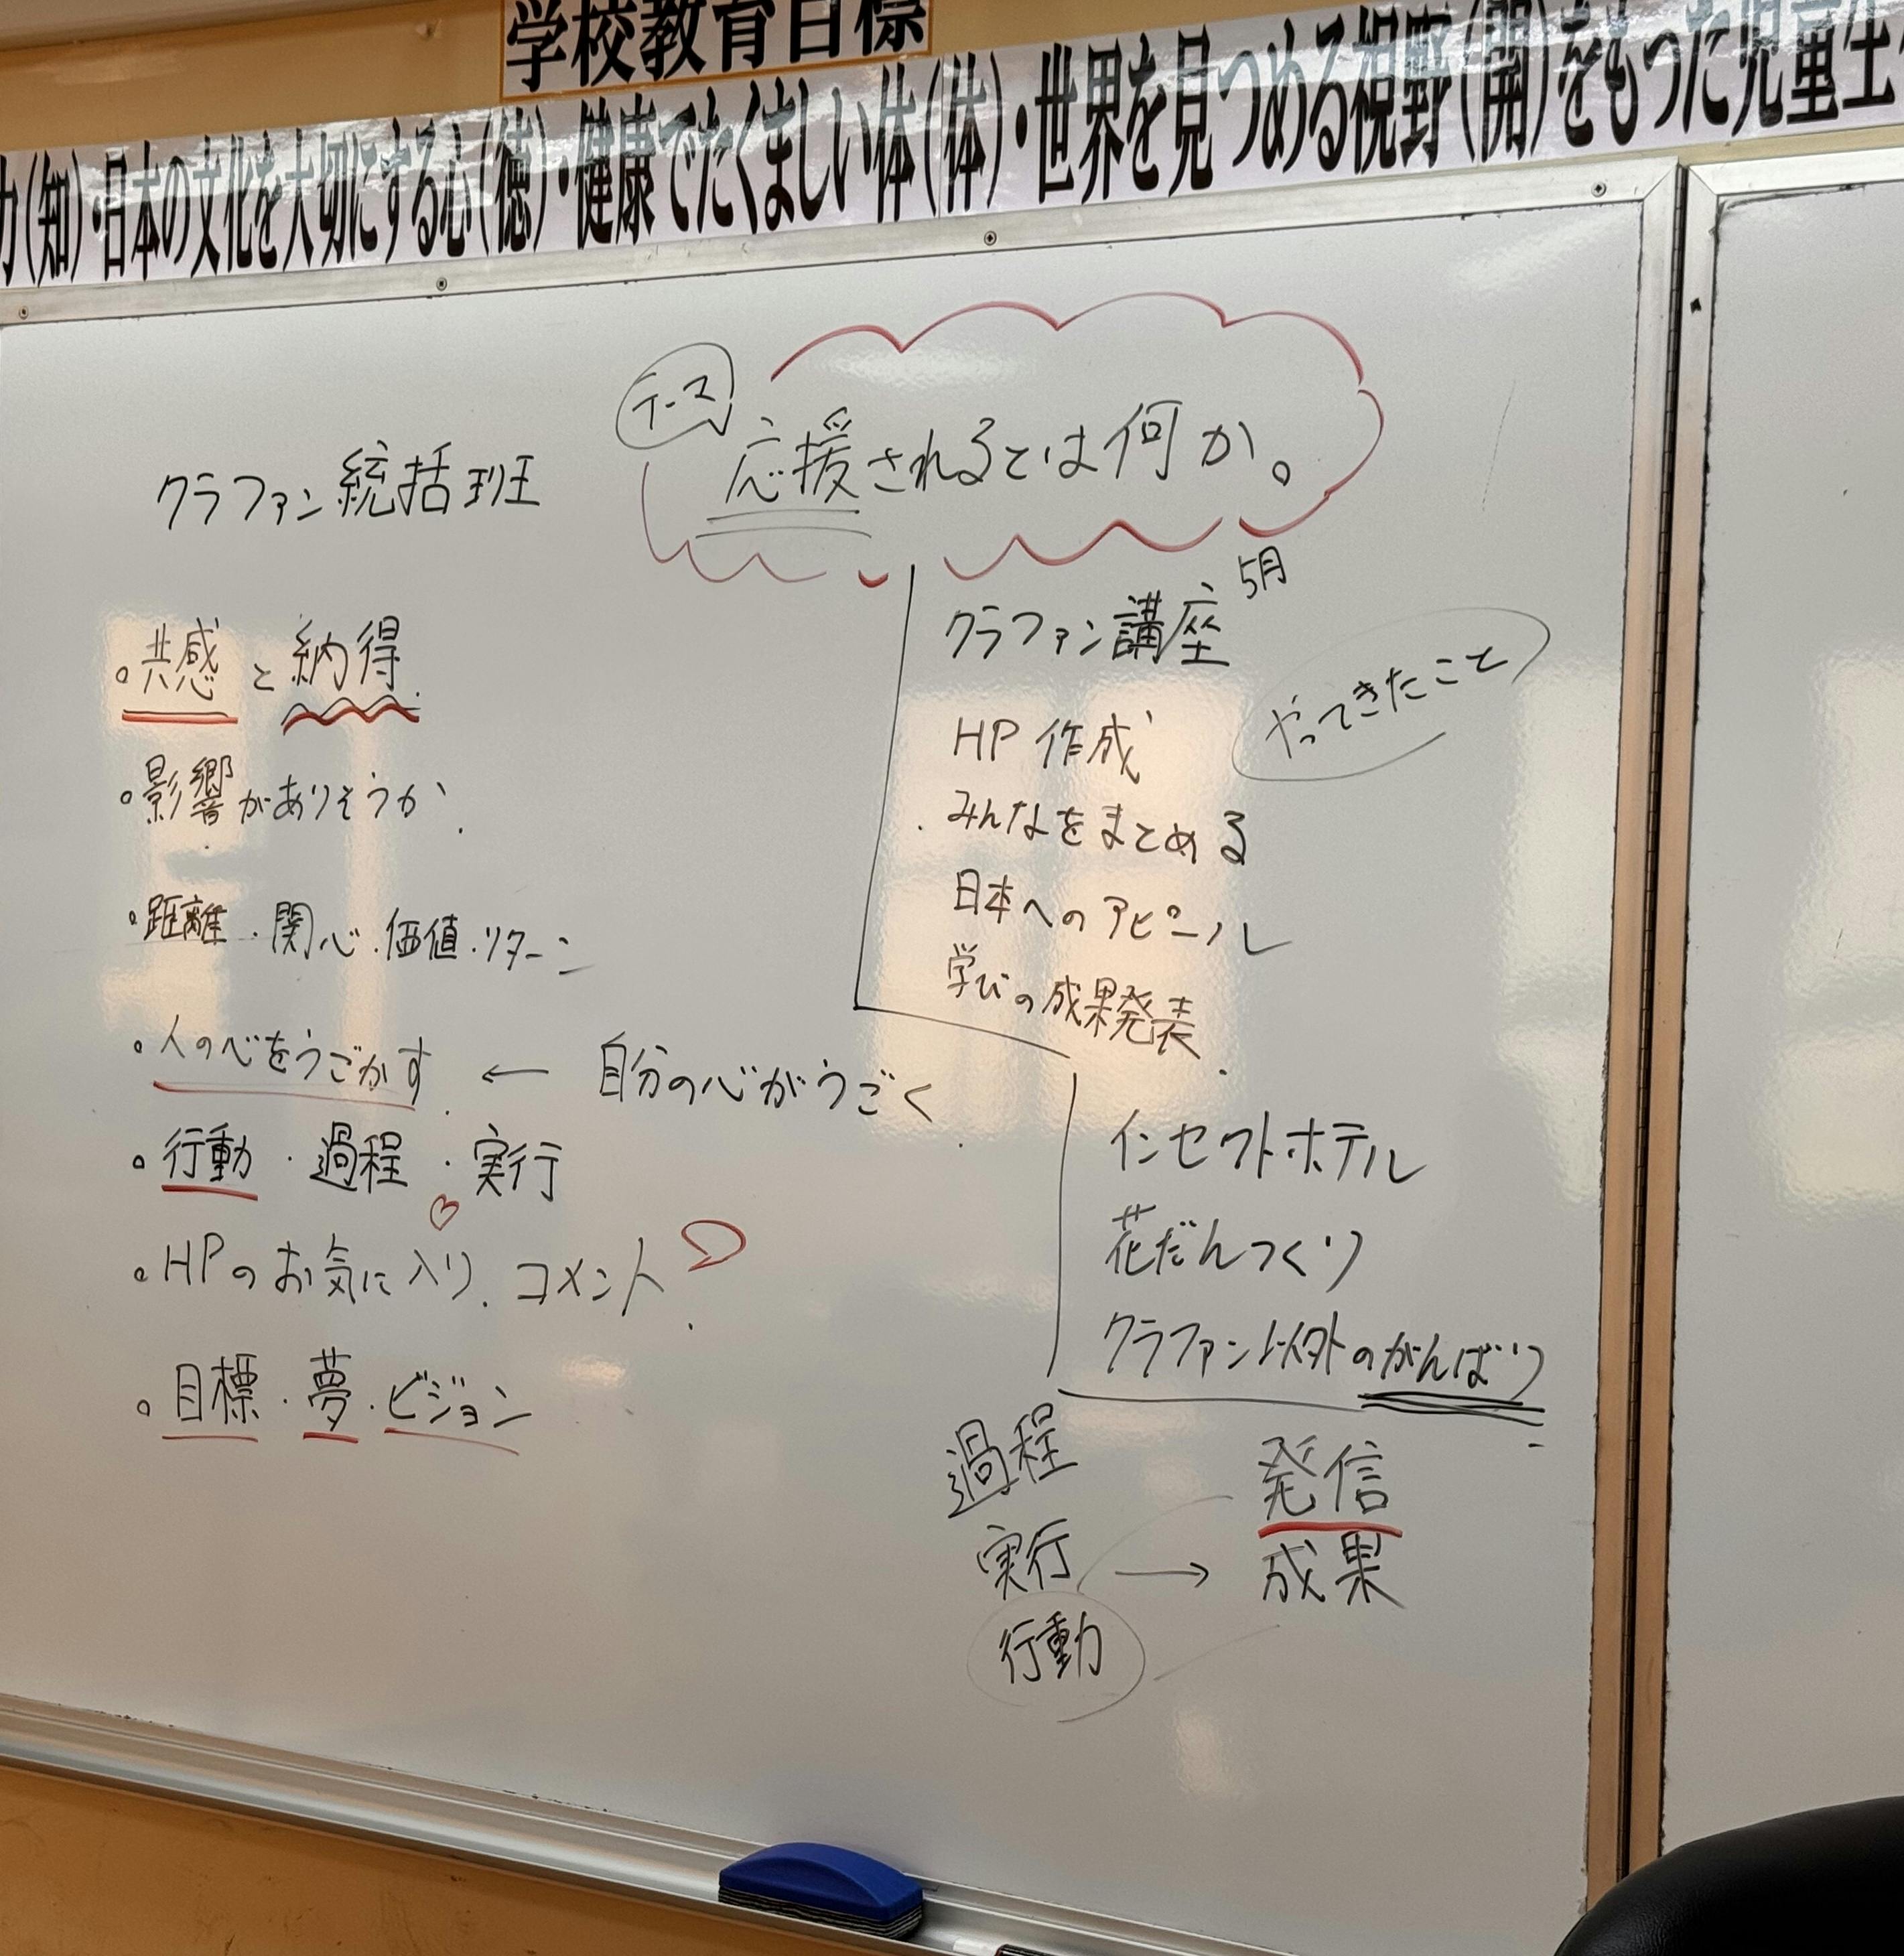 学校教育目標
力(知)・日本の文化を大切にする心(徳)・健康でたくましい体(体)・世界を見つめる視野(開)をもった児童生
テーマ
応援されるとは何か。
クラファン統括班
。共感と納得.
。影響がありそうか.
。距離・関心・価値・リターン
・人の心をうごかす. ← 自分の心がうごく.
。行動・過程・実行
。HPのお気に入り. コメント.
。目標・夢・ビジョン
クラファン講座 5月
やってきたこと
HP作成
・みんなをまとめる
日本へのアピール
学びの成果発表.
インセクトホテル
花だんつくり
クラファン以外のがんばり
過程
実行 →
行動
発信
成果